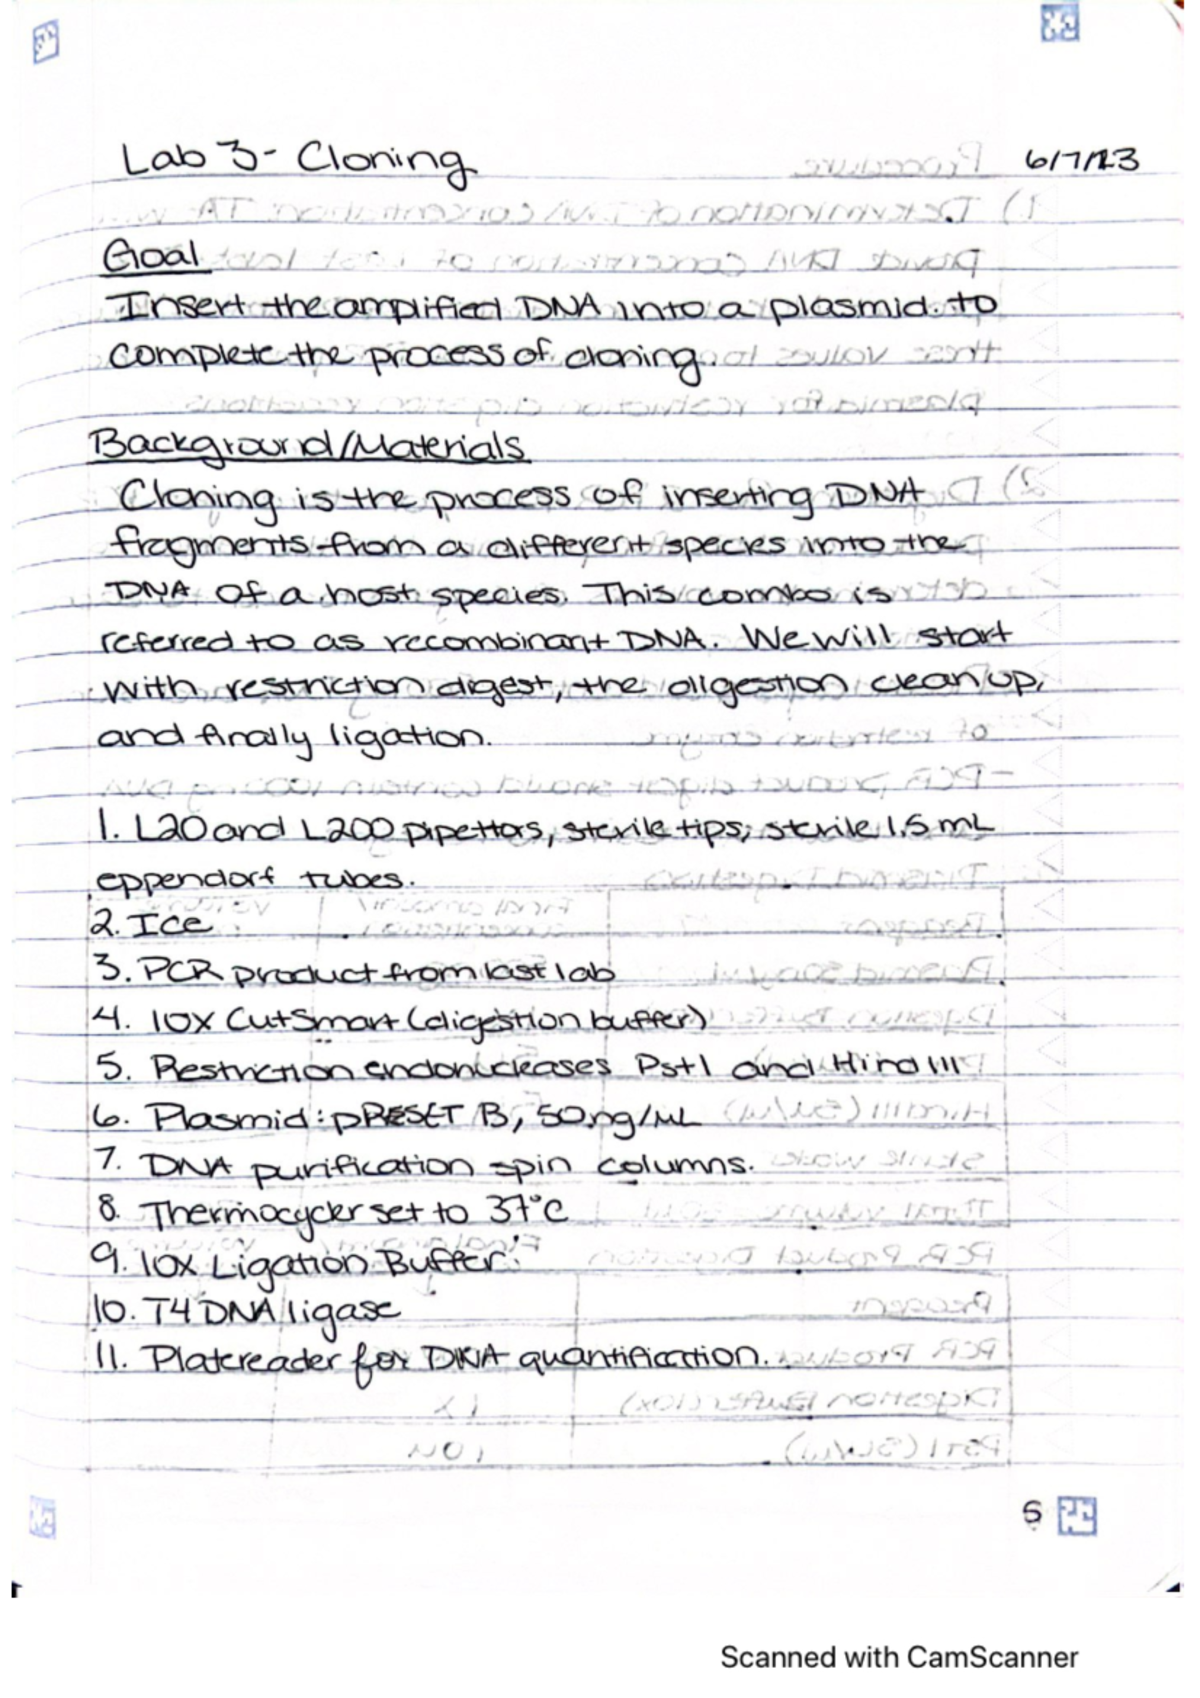 Lab 3- Cloning 6/7/23
Goal
Insert the amplified DNA into a plasmid to
complete the process of cloning.
Background/Materials
Cloning is the process of inserting DNA
fragments from a different species into the
DNA of a host species. This combo is
referred to as recombinant DNA. We will start
with restriction digest, the digestion clean up,
and finally ligation.
1. L20 and L200 pipettors, sterile tips, sterile 1.5 mL
eppendorf tubes.
2. Ice
3. PCR product from last lab
4. 10X CutSmart (digestion buffer)
5. Restriction endonucleases Pst1 and Hind III
6. Plasmid: pRESET B, 50ng/mL
7. DNA purification spin columns.
8. Thermocycler set to 37°C
9. 10x Ligation Buffer
10. T4 DNA ligase
11. Platereader for DNA quantification.
5
Scanned with CamScanner